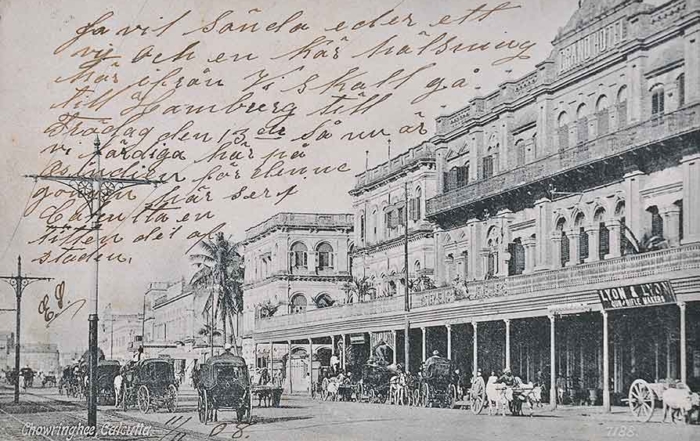 Ja vil sända eder ett
vy och en kär hälsning
här ifrån Vi skall gå
till Hamburg till
Fradag den 13 de så nu är
vi färdiga här på
Indien för denne
gången här serf
Calcutta en
litten del af
staden,
GRAND HOTEL
LYON & LYON
GUN & RIFLE MAKERS
Chowringhee, Calcutta.
11/11 08.
7188.